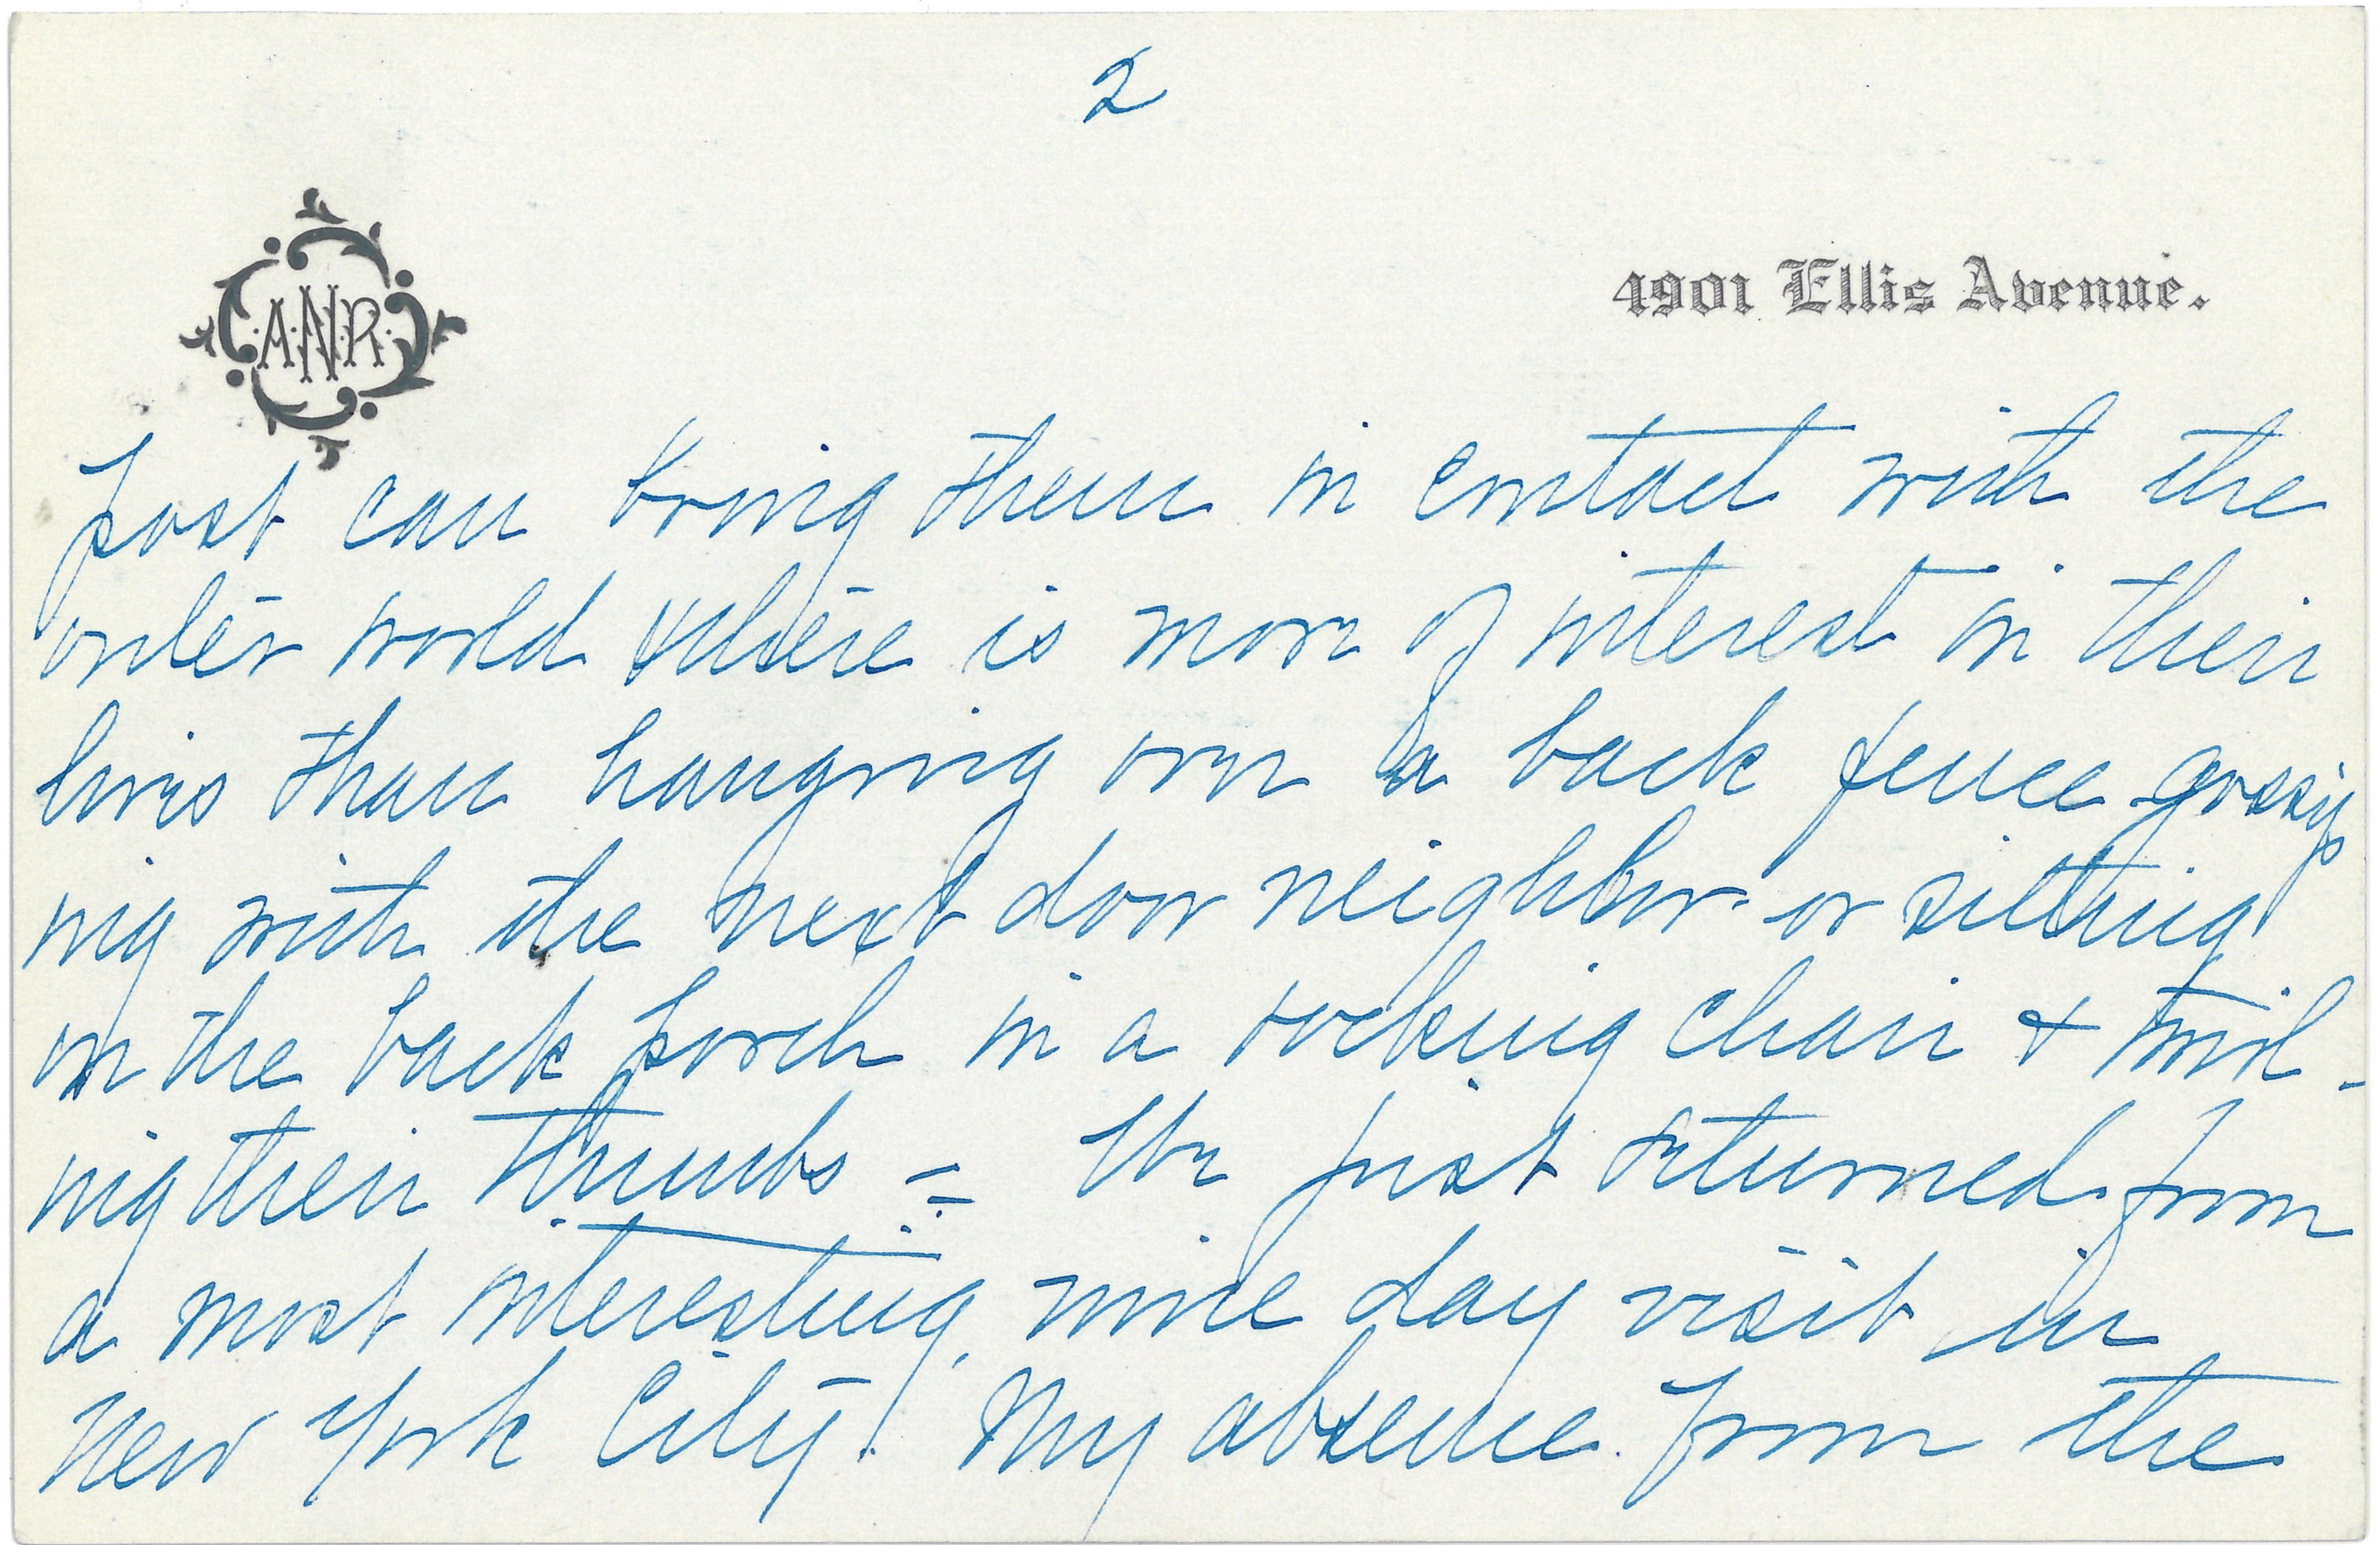 2
ANR
4901 Ellis Avenue.
post can bring them in contact with the
outer world where is more of interest in their
lives than hanging over a back fence gossip
ing with the next door neighbor - or sitting
on the back porch in a rocking chair & twirl-
ing their thumbs = We just returned from
a most interesting nine day visit in
New York City! My absence from the